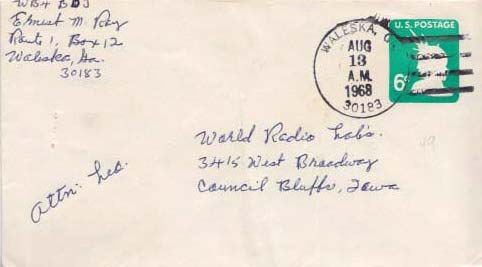 WB4 BDJ
Ernest M. Ray
Route 1, Box 12
Waleska, Ga.
30183
WALESKA, G
AUG
13
A.M.
1968
30183
U.S. POSTAGE
6¢
World Radio Lab's.
3415 West Broadway
Council Bluffs, Iowa
Attn: Leo.